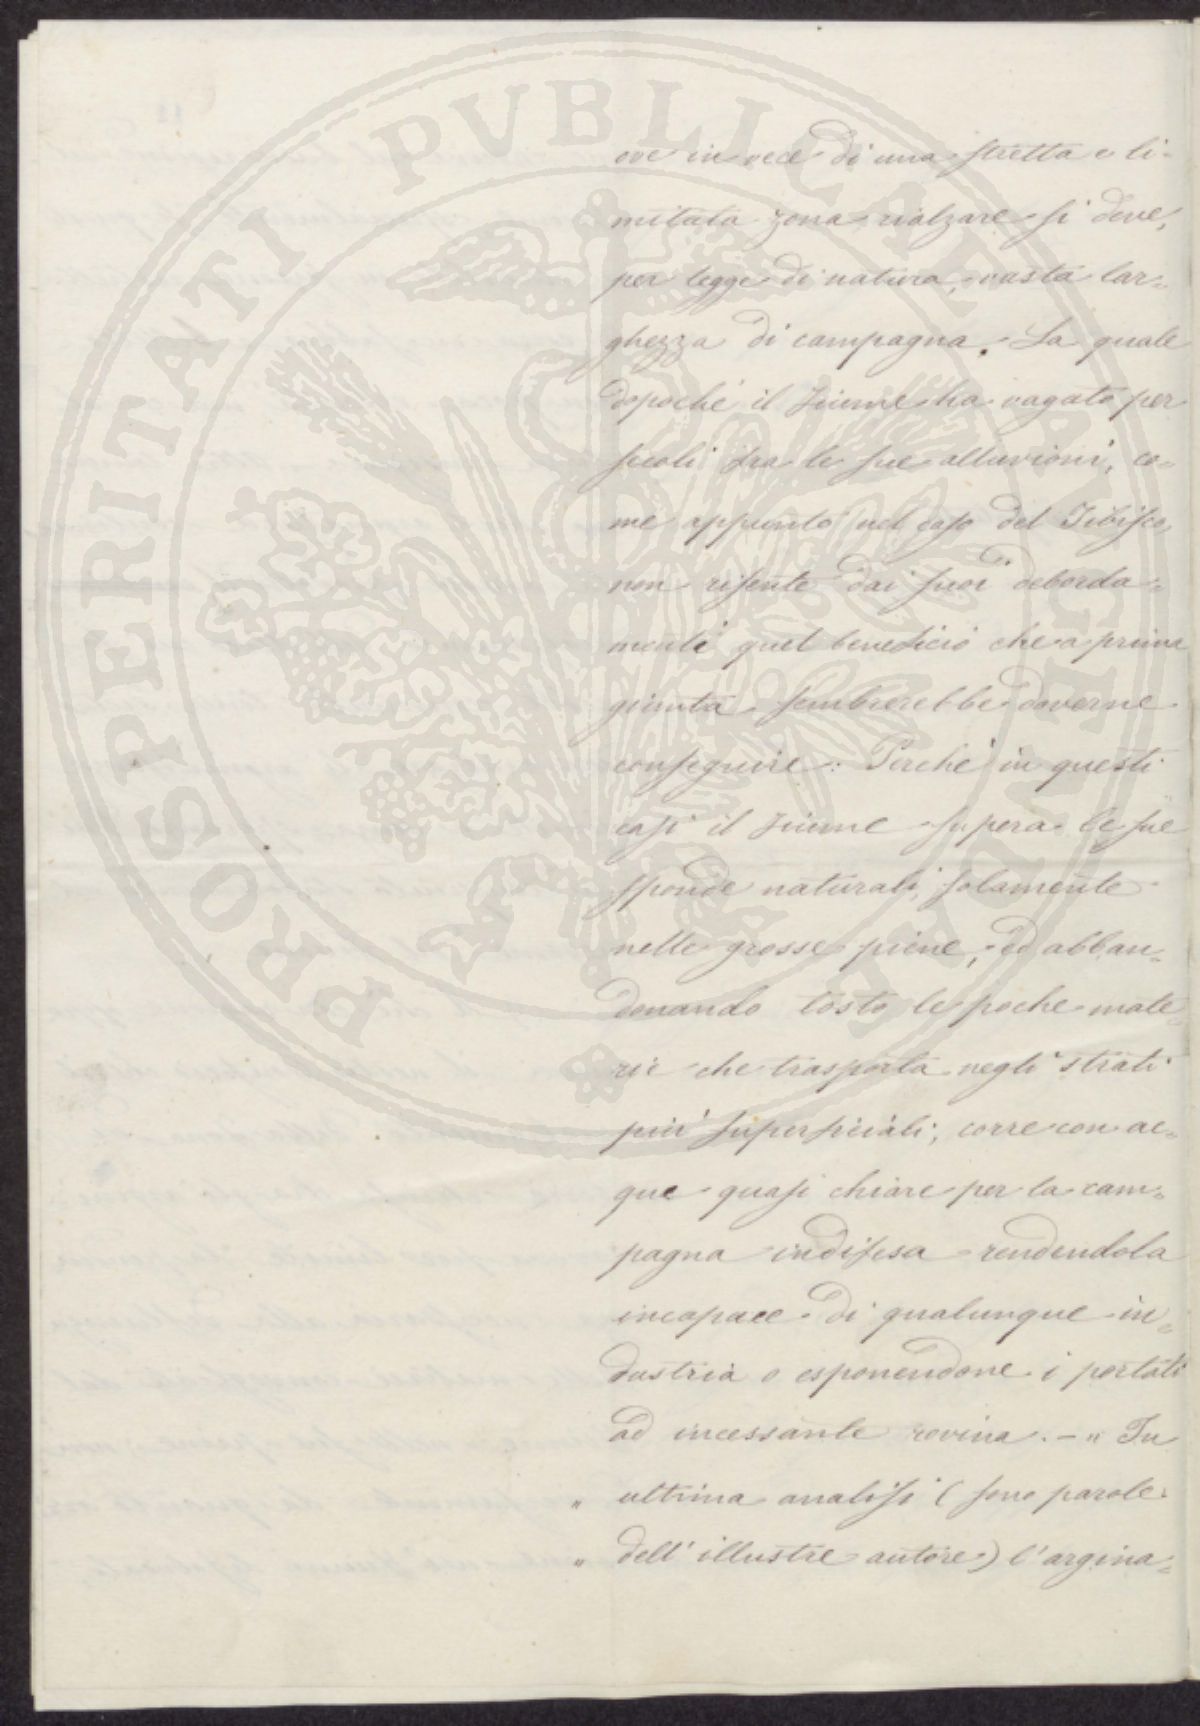 ove in vece di una stretta e li-
mitata zona rialzare si deve,
per legge di natura, vasta lar-
ghezza di campagna. La quale
dopoché il fiume ha vagato per
secoli fra le sue alluvioni, co-
me appunto nel caso del Tibisco,
non risente dai suoi deborda-
menti quel beneficio che a prima
giunta sembrerebbe doverne
conseguire: Perché in questi
casi il fiume supera le sue
sponde naturali, solamente
nelle grosse piene, ed abban-
donando tosto le poche mate-
rie che trasporta negli strati
più superficiali, corre con ac-
que quasi chiare per la cam-
pagna indifesa rendendola
incapace di qualunque in-
dustria o esponendone i portati
ad incessante rovina. – " In
" ultima analisi (sono parole
" dell'illustre autore) l'argina-
PROSPERITATI PVBLICAE AVGENDAE